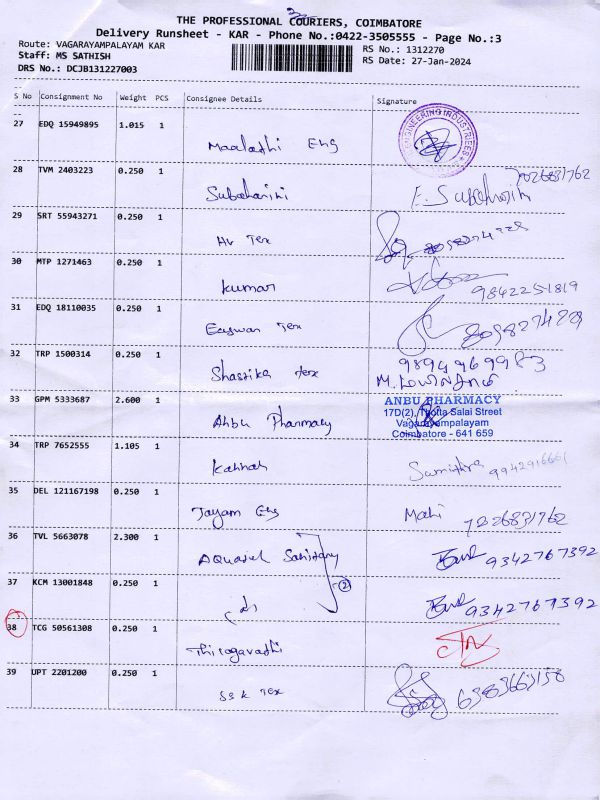 3
THE PROFESSIONAL COURIERS, COIMBATORE
Delivery Runsheet - KAR - Phone No.:0422-3505555 - Page No.:3
Route: VAGARAYAMPALAYAM KAR RS No.: 1312270
Staff: MS SATHISH RS Date: 27-Jan-2024
DRS No.: DCJB131227003
S No Consignment No Weight PCS Consignee Details Signature
27 EDQ 15949895 1.015 1
Maalathi Eng ENGINEERING INDUSTRIES
28 TVM 2403223 0.250 1 7026831762
Subaharini E. Subaharini
29 SRT 55943271 0.250 1
AV Tex
30 MTP 1271463 0.250 1
Kumar 9842251819
31 EDQ 18110035 0.250 1
Easwan Tex
32 TRP 1500314 0.250 1 9894969983
Shastika Tex
33 GPM 5333687 2.600 1 ANBU PHARMACY
17D(2), Thotta Salai Street
Anbu Pharmacy Vagarayampalayam
Coimbatore - 641 659
34 TRP 7652555 1.105 1
Kannan Sumithra
35 DEL 121167198 0.250 1
Jayam Eng Mani 7026831762
36 TVL 5663078 2.300 1
Aquasul Sanitary 9342767392
37 KCM 13001848 0.250 1 2
9342767392
38 TCG 50561308 0.250 1
Thiyagavathi
39 UPT 2201200 0.250 1
SSK Tex 6383663158